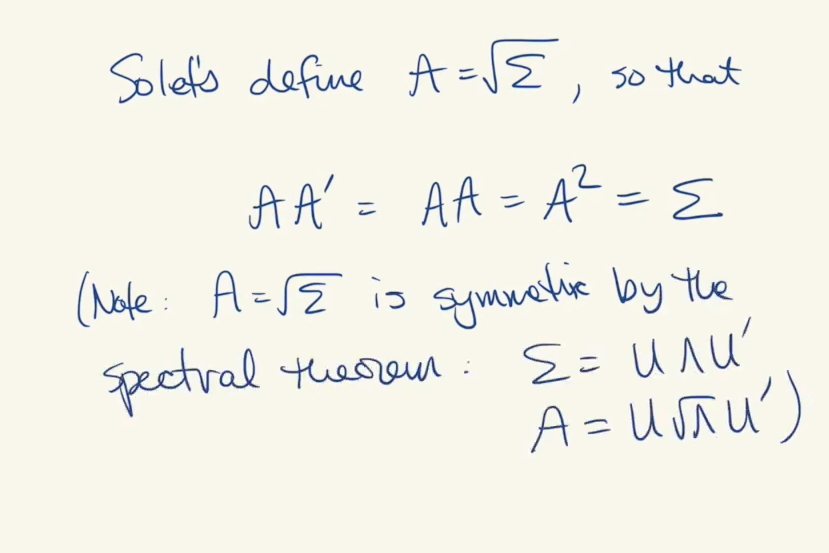 So let's define A = √Σ, so that
AA' = AA = A² = Σ
(Note: A = √Σ is symmetric by the
spectral theorem: Σ = UΛU'
A = U√ΛU')